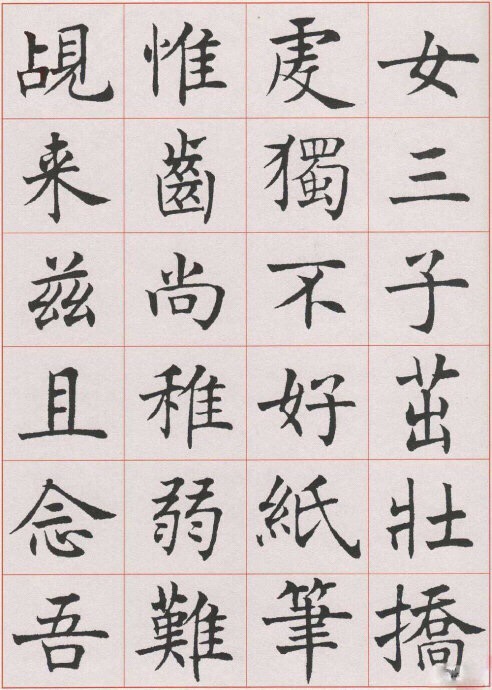 女三子茁壯撟
虔獨不好紙筆
惟齒尚稚弱難
覘来茲且念吾